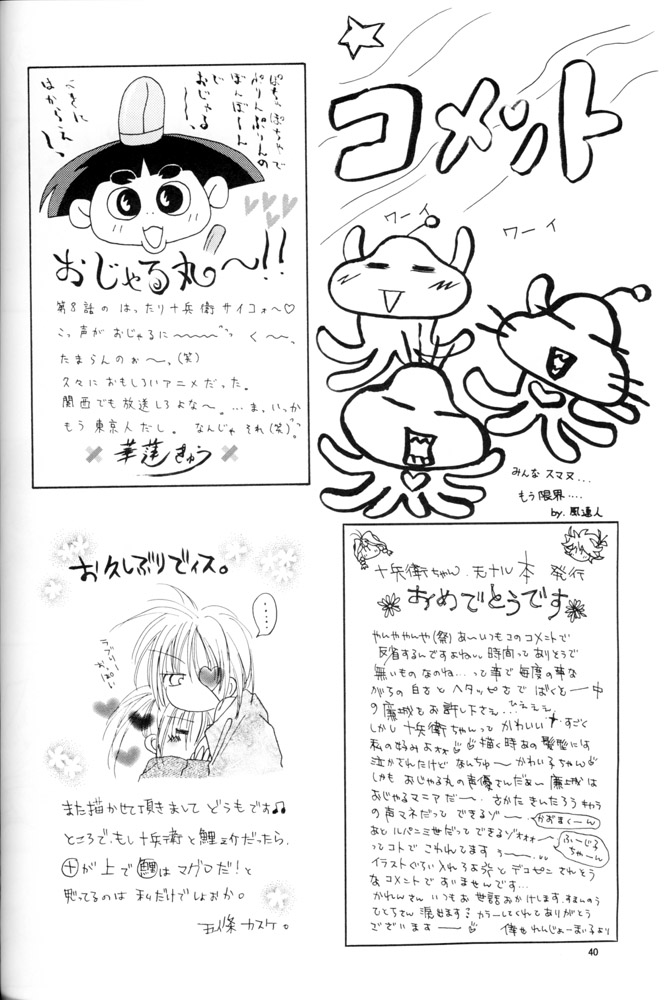 コメント
ワーイ
ワーイ
みんなスマヌ...
もう限界....
by.風道人
ぽちゃぽちゃで
ぷりんぷりんの
ぼんぼーん
じ
おじゃる
〜い、
へきに
はからえ
〜い、
おじゃる丸〜!!
第8話の はったり十兵衛 サイコォ〜♡
こっ声が おじゃるに〜〜〜〜 く〜〜、
たまらんのぉ〜〜、(笑)
久々に おもしろい アニメ だった。
関西でも 放送しろよな〜。...ま、いっか
もう 東京人だし。 なんじゃ それ(笑)。
華蓮きゅう
お久しぶりでィス。
....
ラブリー
また描かせて頂きまして どうもです♫
ところで、もし十兵衛と鯉ノ介だったら、
十が上で鯉はマグロだ!と
思ってるのは 私だけでしょおか。
五條 カスケ。
十兵衛ちゃん. 本 発行
おめでとうです
やんややんや(祭) あ〜いつもこのコメントで
反省するんですよねぃ。時間ってありそうで
無いものなのね...って事で毎度の事な
がらの白さとヘタッピさで ばくと一中
の廉城をお許し下さえ... ひえぇぇ
しかし十兵衛ちゃんって かわいい すごく
私の好みよ 描く時あの髪型には
泣かされたけど なんちゅ〜 かわい子ちゃん
しかも おじゃる丸の声優さんだぁい 廉城は
おじゃるマニアだ〜. さかた きんたろう キャラ
の声マネだって できるゾ〜 かおまくーん
あと ルパン三世だって できるゾ ふーじこちゃーん
ってコトで こわれてます う〜〜...
イラストぐらい入れろよ と デコピン されそう
な コメント で すいません です...
かれんさん いつも お世話おかけします.
ひとちさん カラーしてくれて ありがとう
ございます〜
40